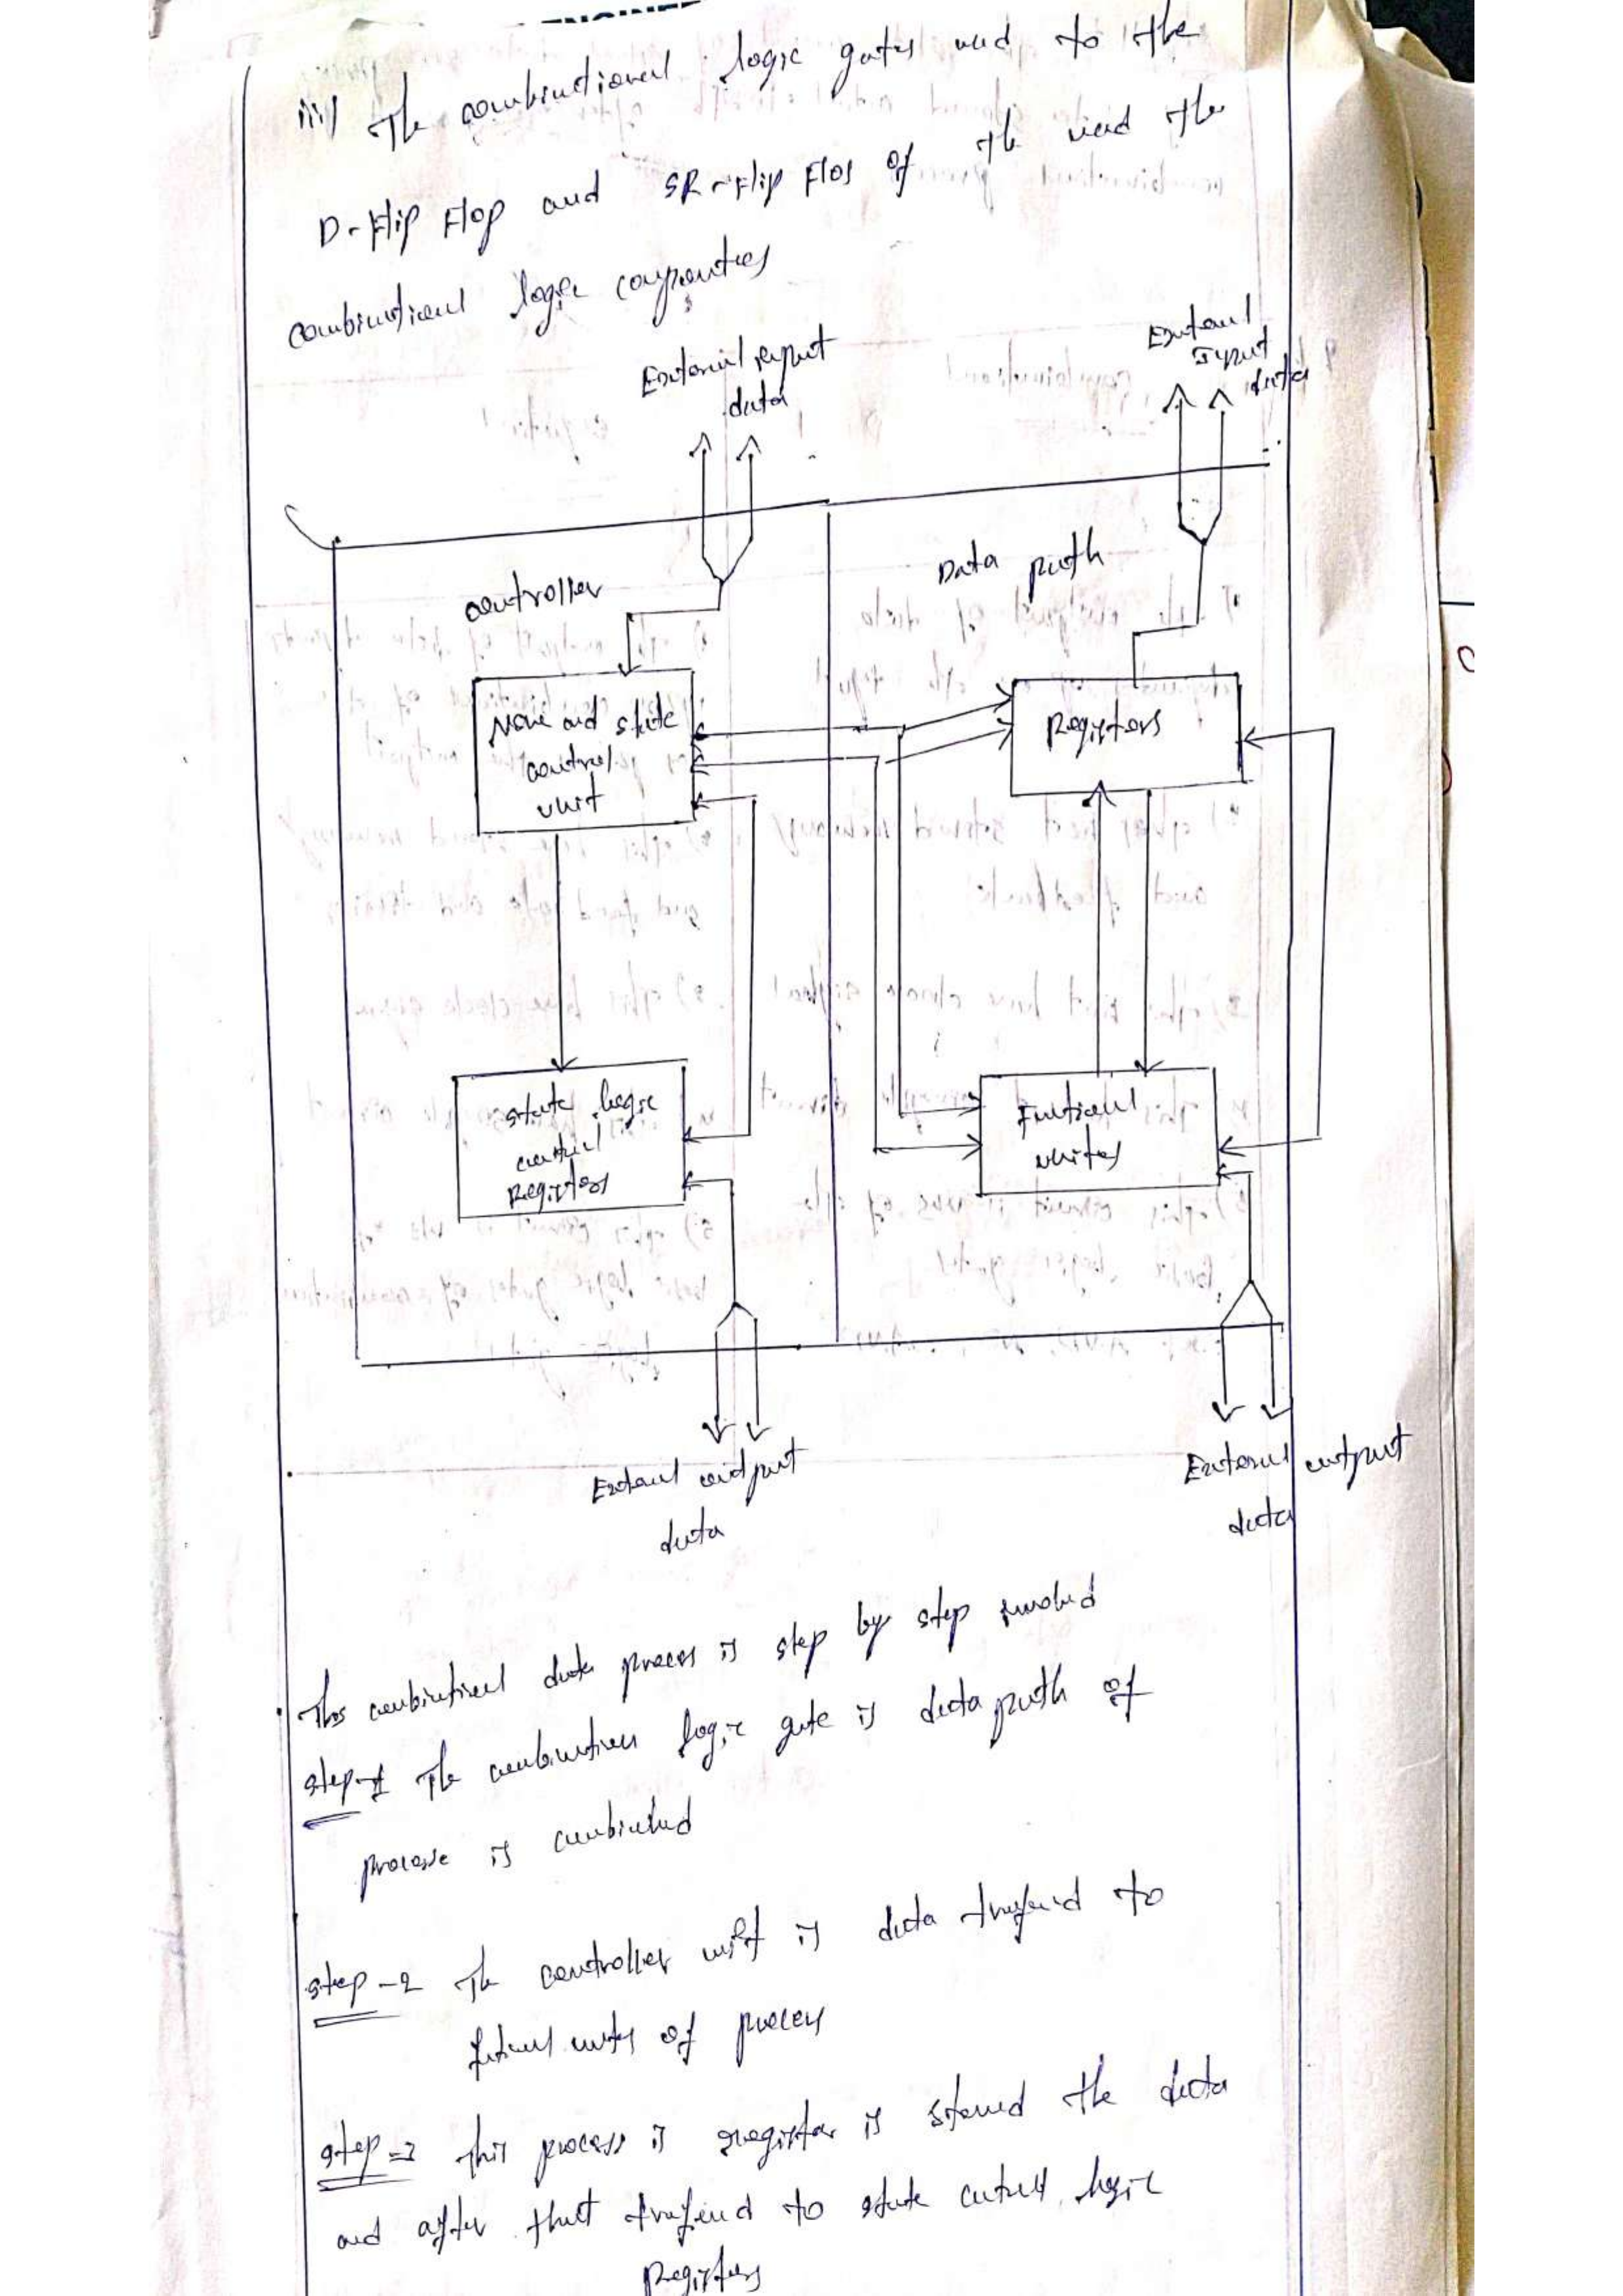 iii) The combinctional logic gates used to the
D-Flip Flop and SR-Flip Flos of the used the
combinctional logic componties
External input
data
External
Input
data
controller
Data path
Now and state
control
unit
Registers
state logic
control
Registers
Funtional
unites
External output
data
External output
data
This combinctional data process is step by step involved
step-1 The combinction logic gate is data path of
process is combincted
step-2 The controller unit is data transferd to
funtional unites of process
step-3 This process is register is stored the data
and after that transferd to state control logic
Registers